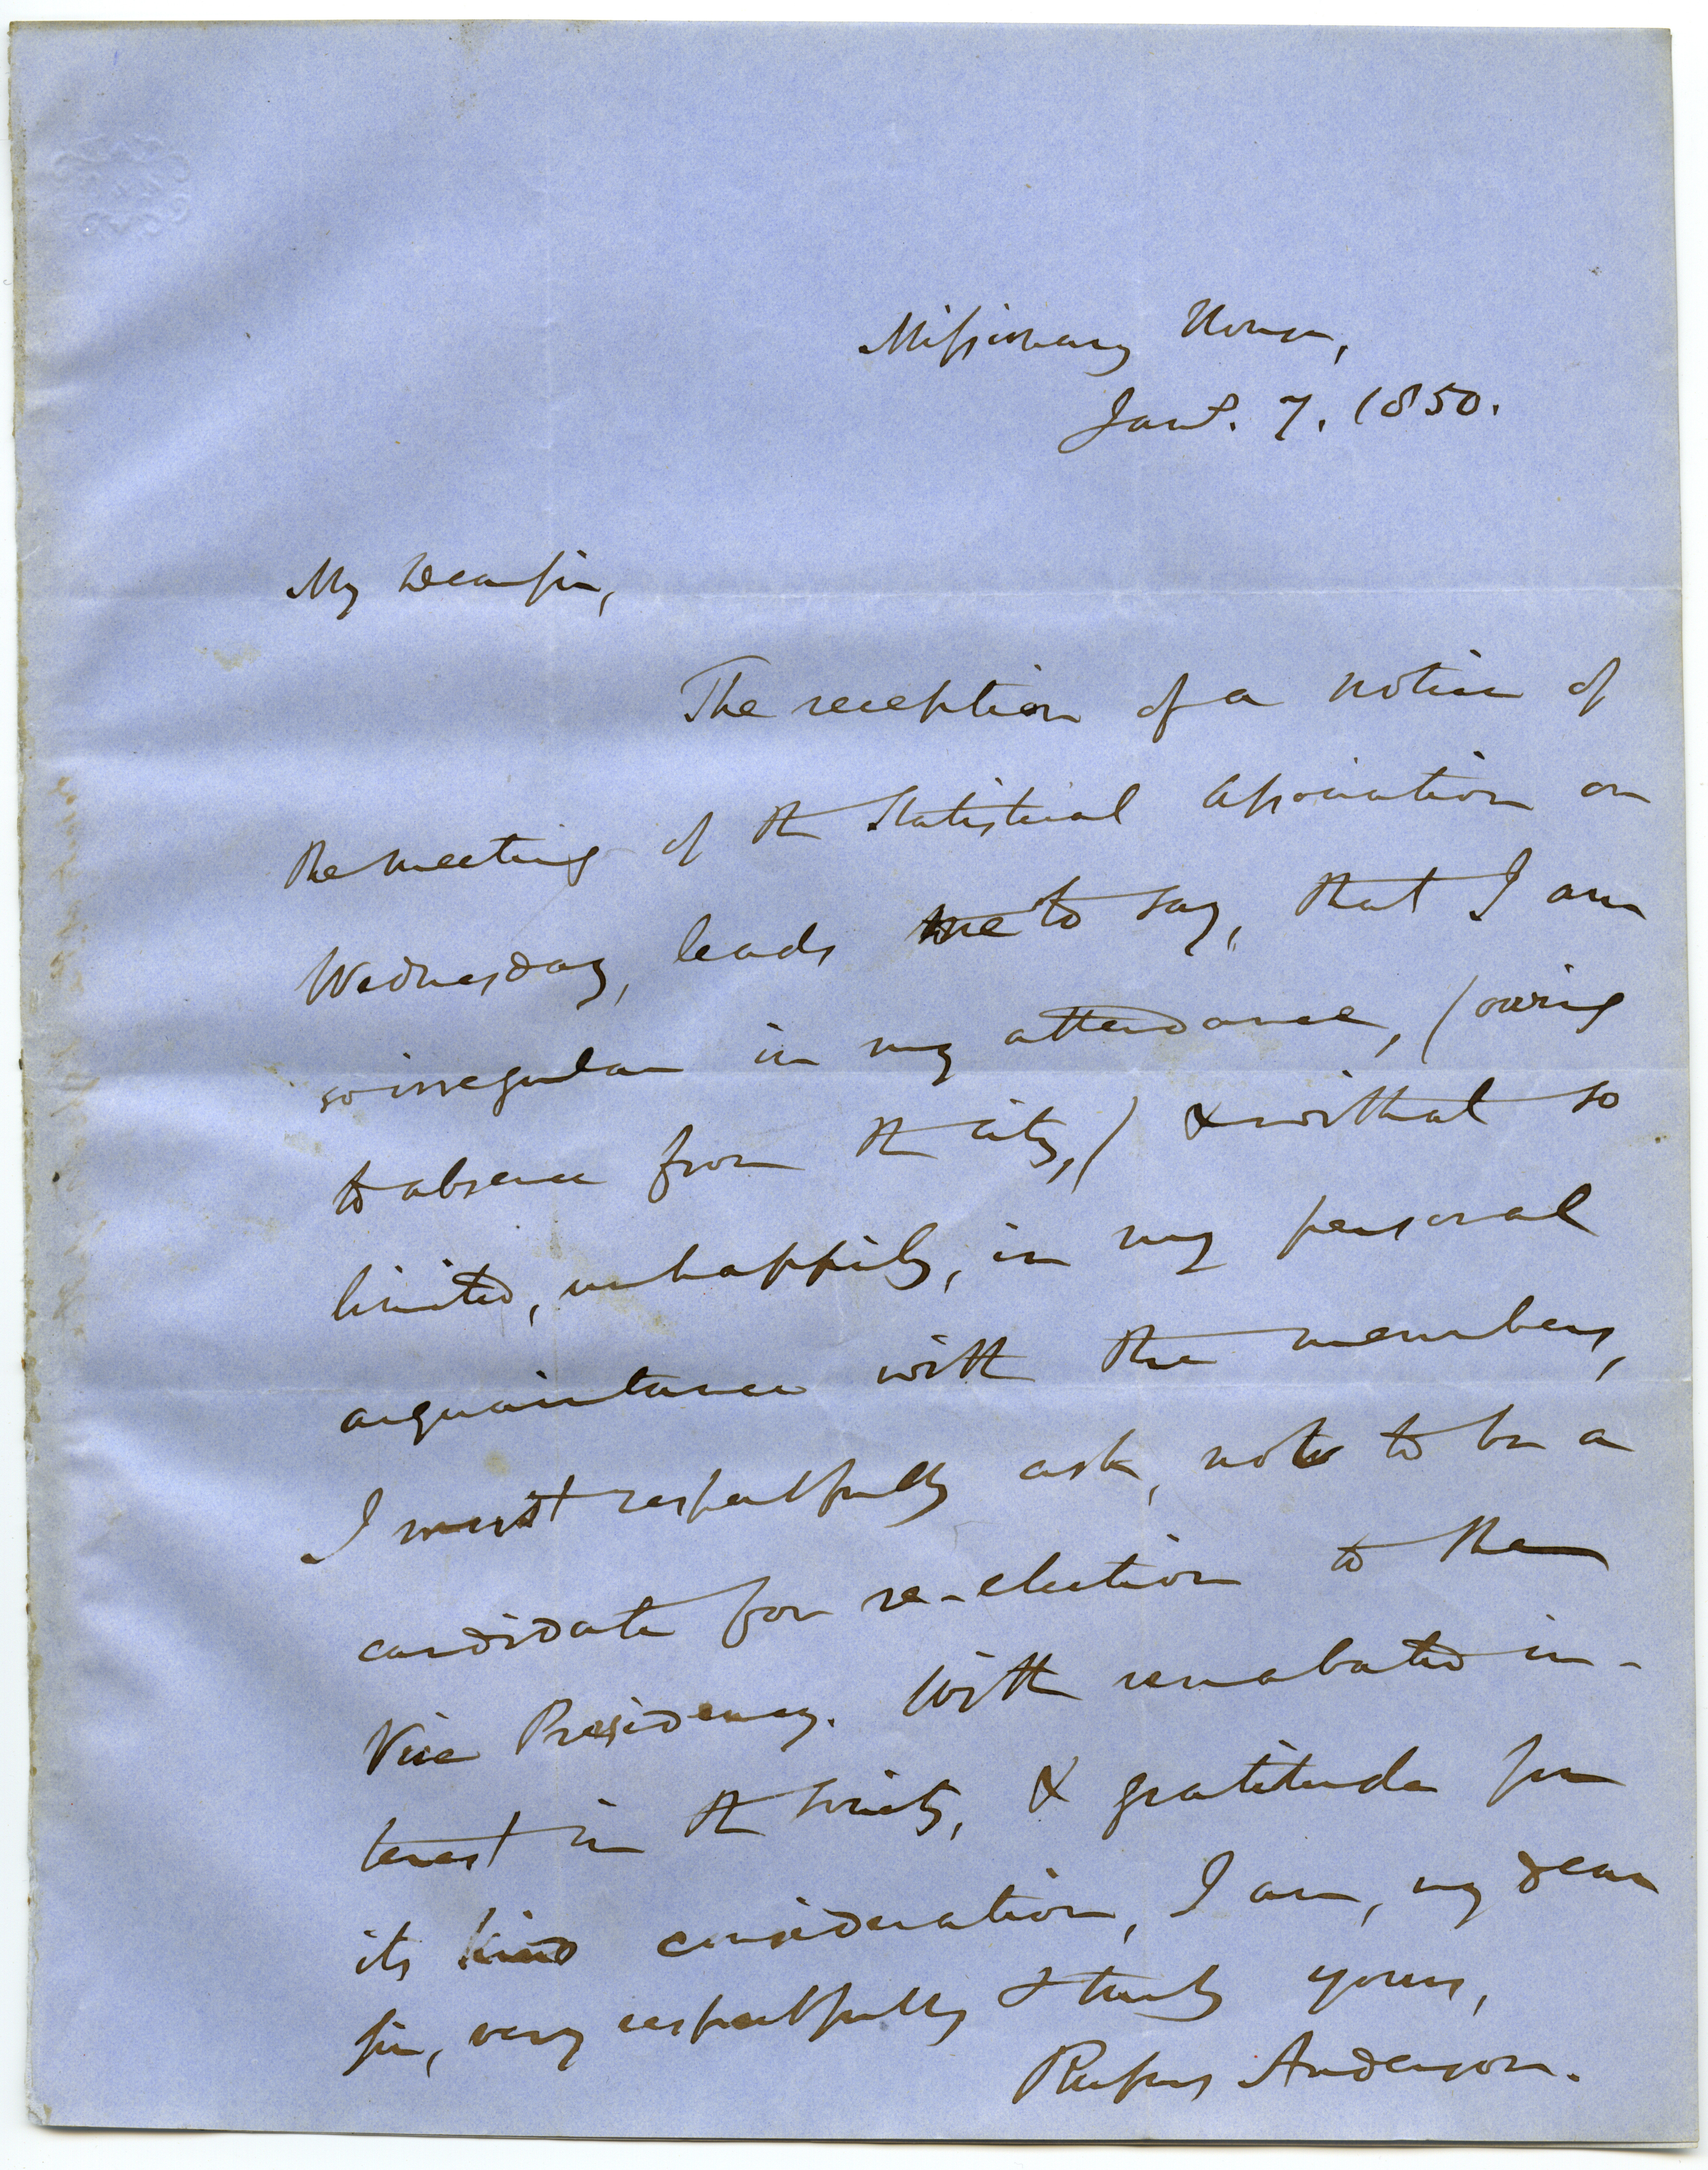 Missionary House,
Jany. 7. 1850.
My Dear Sir,
The reception of a notice of
the meeting of the Statistical Association on
Wednesday, leads me to say, that I am
so irregular in my attendance, (owing
to absence from the city,) & withal so
limited, unhappily, in my personal
acquaintance with the members,
I must respectfully ask, not to be a
candidate for re-election to the
Vice Presidency. With unabated in-
terest in the Society, & gratitude for
its kind consideration, I am, my dear
Sir, very respectfully & truly yours,
Rufus Anderson.